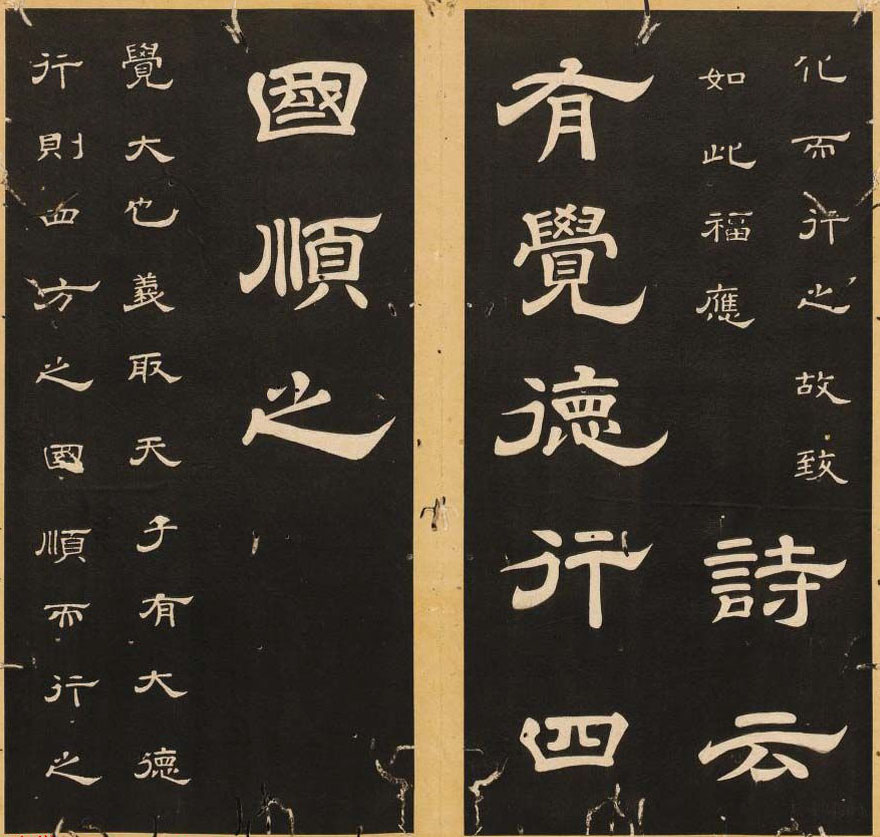 化而行之故致
如此福應
詩云
有覺德行四
國順之
覺大也義取天子有大德
行則四方之國順而行之